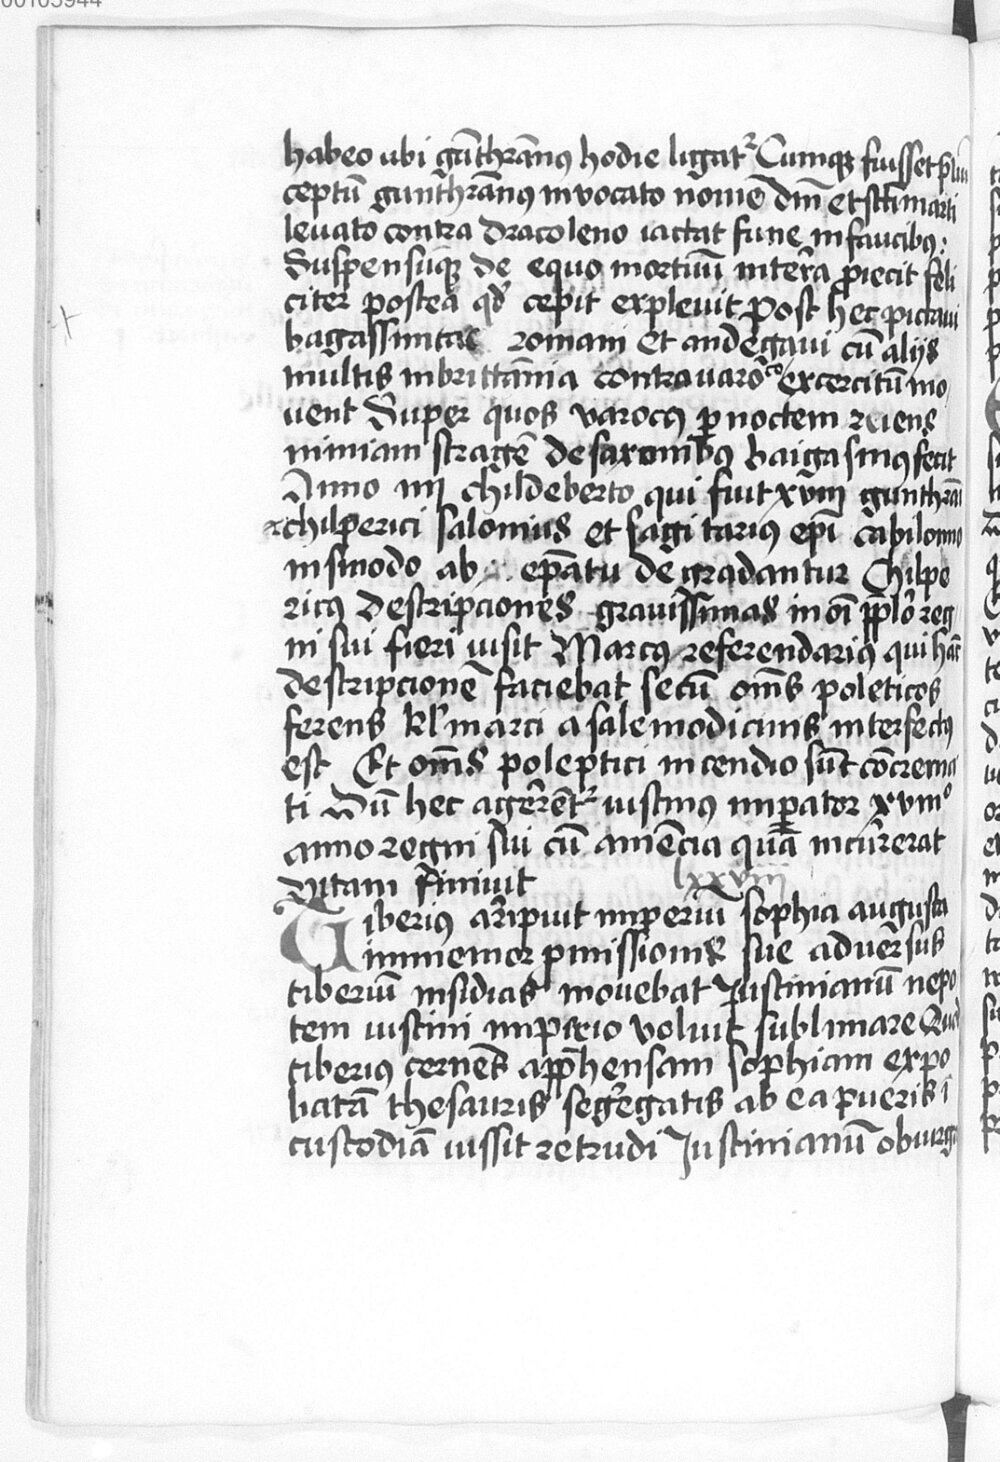 00105944
habeo ubi gūthrānꝰ hodie ligatᷣ Cumqꝫ fuisset p̄liū
ceptū gunthrānꝰ invocato nomē dn̄i et sc̄ti marti
levato contra dracoleno iactat fune in faucibꝫ:
Suspensūqꝫ de equo mortuū in terra ꝓiecit feli
citer postea qd̄ cepit explevit Post hec pictavi
bagassinitac romani et andegavi cū aliis
multis in brittānia contra varocō exercitū mo
vent Super quos varocꝰ ꝑ noctem reiens
nimiam stragē de saxonibꝰ baigasinꝰ fecit
Anno iiij childeberto qui fuit xviij gunthrāi
chilperici salonius et sagitarius ep̄i cabilonno
in sinodo ab ep̄atu degradantur Chilpe
ricꝰ descripciones gravissimas in oī pp̄lo reg
ni sui fieri iusit Marcꝰ referendariꝰ qui hāc
descripcionē faciebat secū om̄s poleticos
ferens kl̄ marci a salemodicinis interfectꝰ
est Et om̄s poleptici incendio sūt cōcrema
ti Dū hec agerētᷣ iustinꝰ imꝑator xviij°
anno regni sui cū amēcia quā incurrerat
vitam finiuit lxxviij
Tiberiꝰ arripuit imperiū sophia augusta
immemor ꝓmissionis sue adversus
tiberiū insidias movebat Justinianū nepo
tem iustini imperio voluit sublimare Quod
tiberius cernēs app̄hensam sophiam expo
batā thesauris segregatis ab ea pueris ī
custodiā iussit retrudi Justinianū obiurga